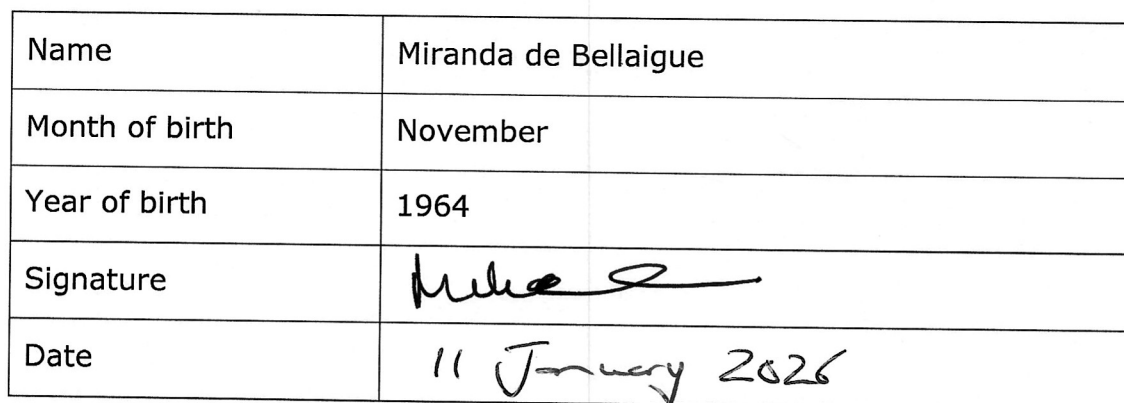 Name Miranda de Bellaigue
Month of birth November
Year of birth 1964
Signature
Date 11 January 2026